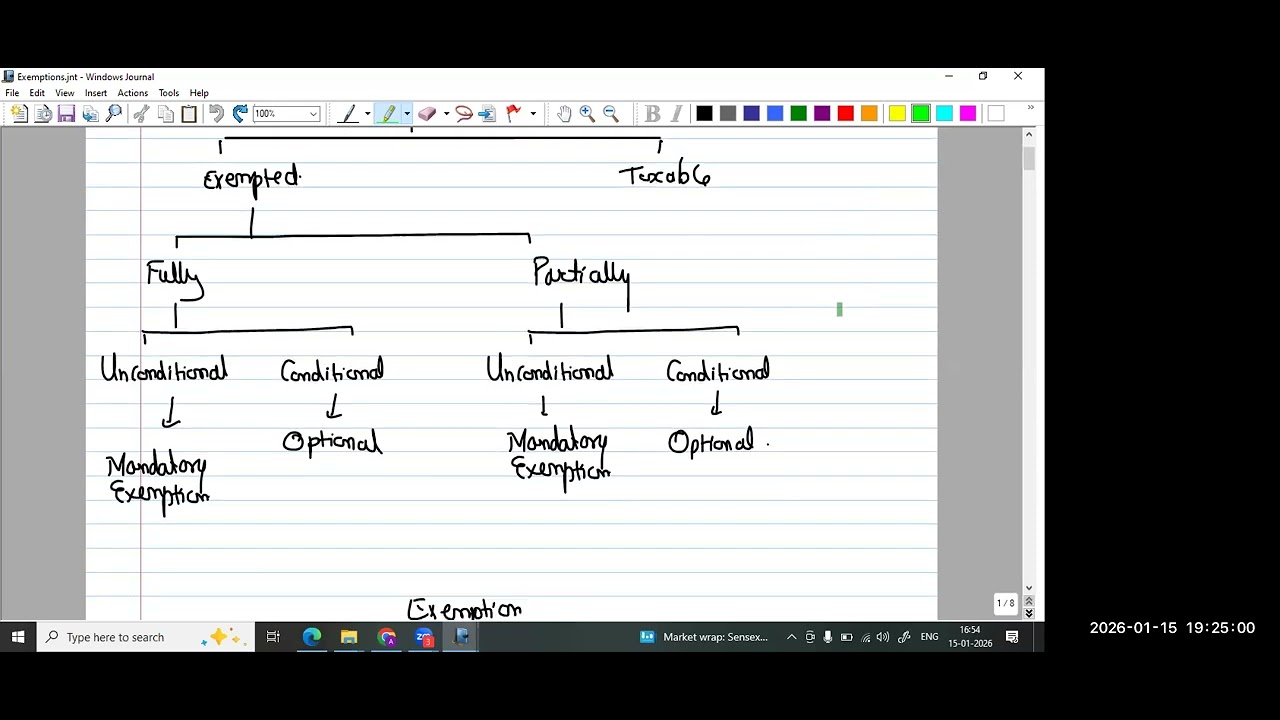 Exemptions.jnt - Windows Journal
File Edit View Insert Actions Tools Help
100%
Exempted. Taxable
Fully Partially
Unconditional Conditional Unconditional Conditional
Mandatory Exemption Optional Mandatory Exemption Optional.
Exemption
1 / 8
Type here to search
Market wrap: Sensex...
ENG
16:54
15-01-2026
2026-01-15 19:25:00